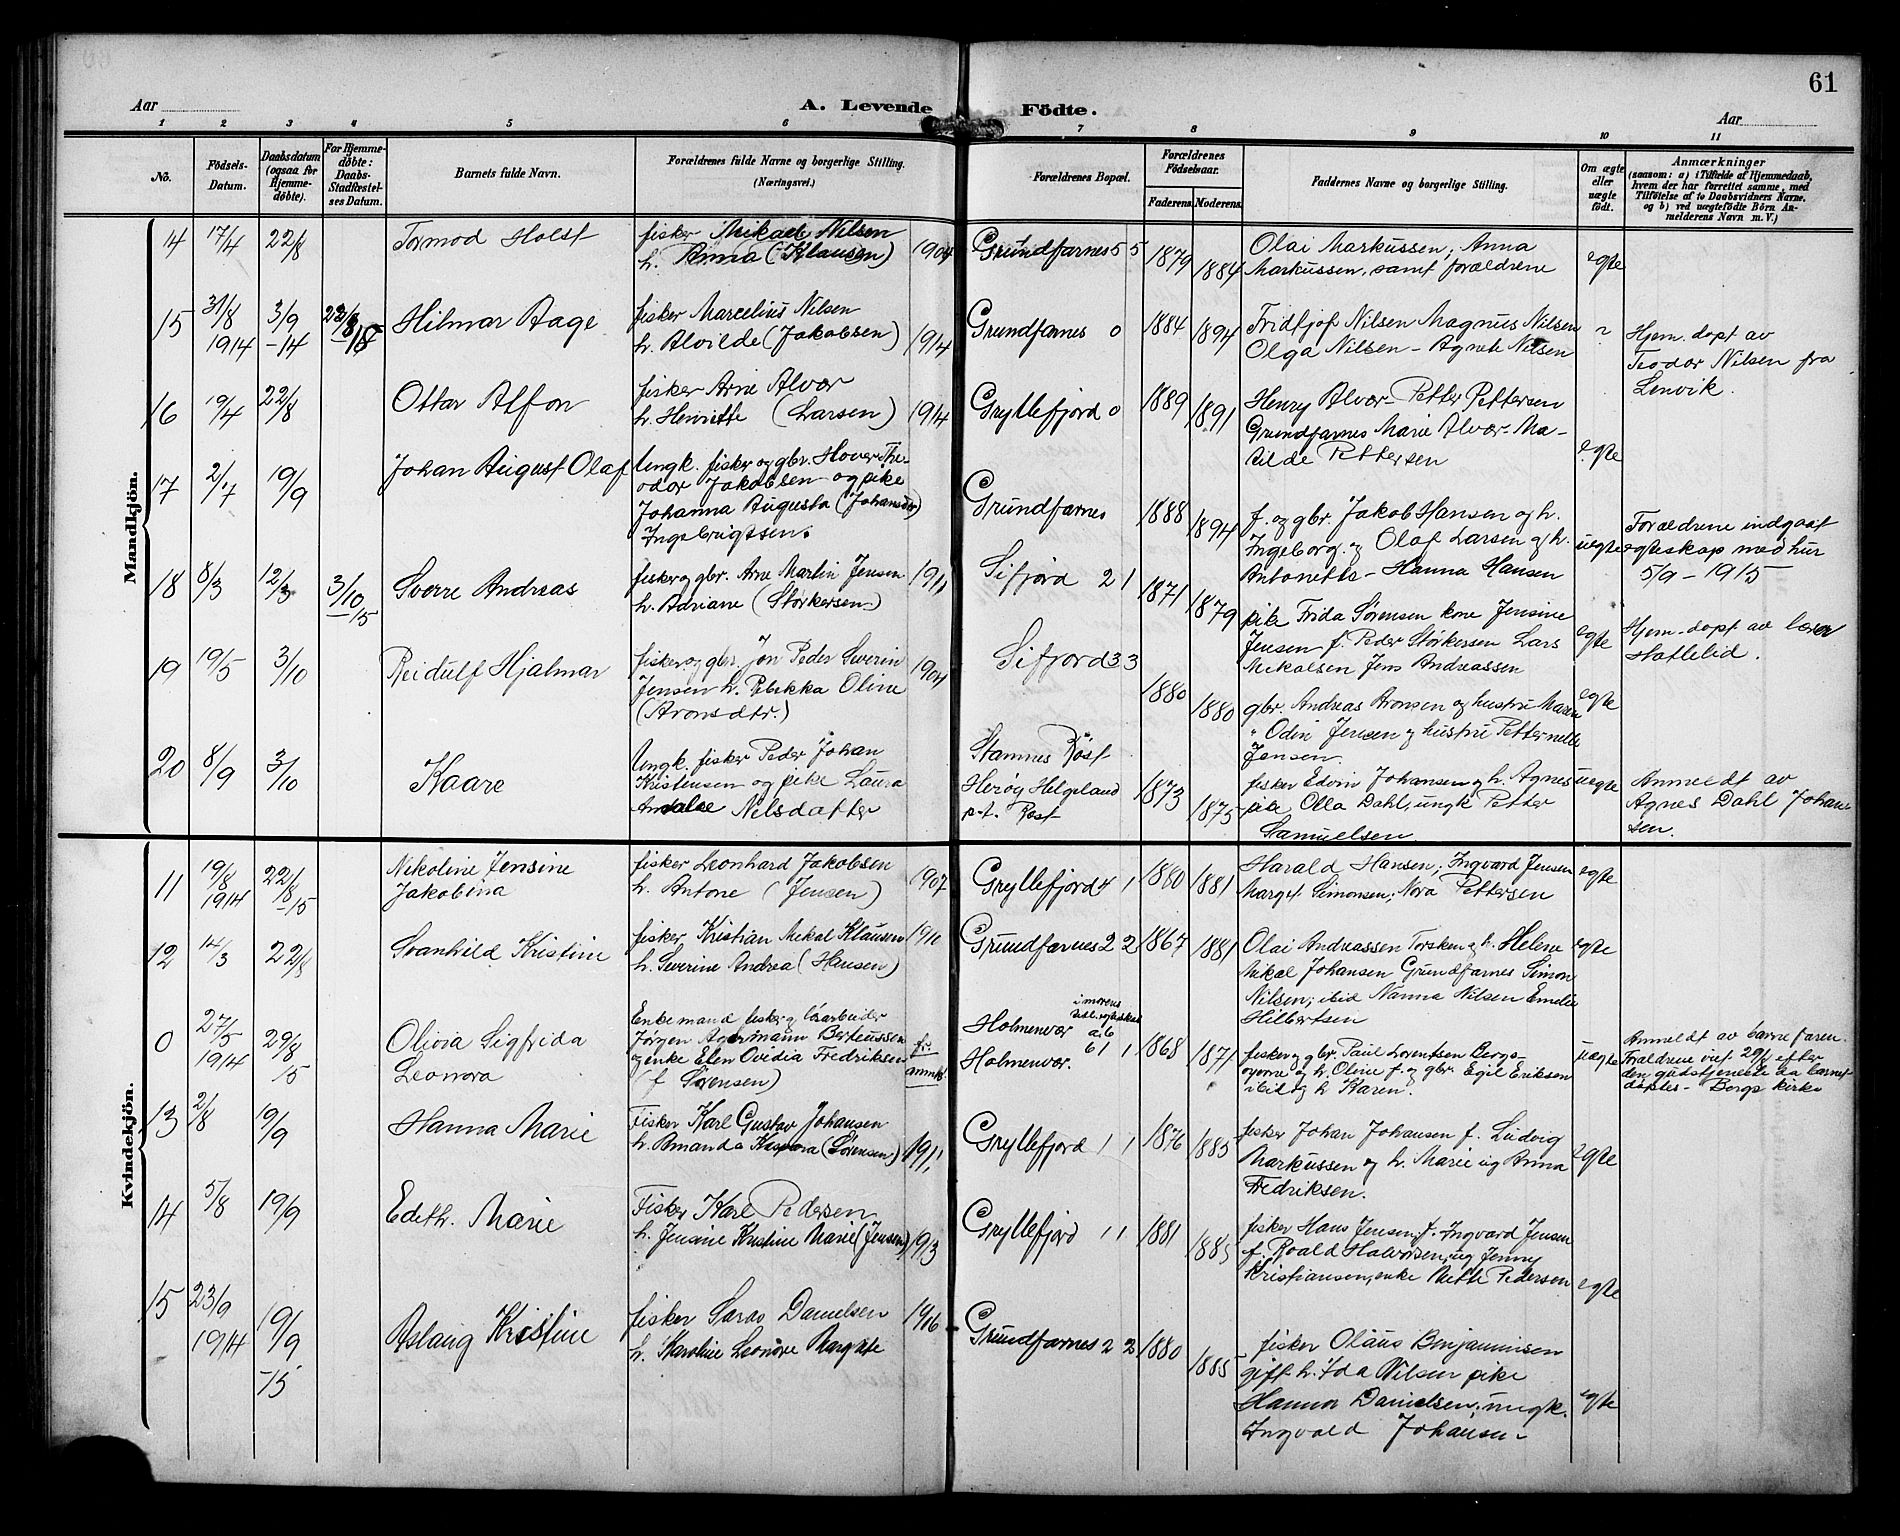 61
Aar
A. Levende Födte.
Aar
1 2 3 4 5 6 7 8 9 10 11
No.
Födsels-Datum.
Daabsdatum (ogsaa for Hjemme-döbte).
For Hjemme-döbte: Daabs-Stadfæstel-ses Datum.
Barnets fulde Navn.
Forældrenes fulde Navne og borgerlige Stilling. (Næringsvei.)
Forældrenes Bopæl.
Forældrenes Födselsaar.
Faderens. Moderens.
Faddernes Navne og borgerlige Stilling.
Om ægte eller uægte født.
Anmærkninger
(saasom: a) i Tilfælde af Hjemmedaab,
hvem der har forrettet samme, med
Tilföielse af to Daabsvidners Navne.
og b) ved uægtefödte Börn An-
melderens Navn m. V.)
Mandkjön.
14 17/4 22/8 Tormod Holst
fisker Mikael Nilsen
h. Anna (Klausen) 1904
Grundfarnes 5 5 1879 1884
Olai Markussen; Anna
Markussen, samt forældrene
egte
15 31/8 1914 3/9 -14 Hilmar Aage
fisker Marcelius Nilsen
h. Alvilde (Jakobsen) 1914
Grundfarnes 0 1884 1894
Fridtjof Nilsen Magnus Nilsen
Olga Nilsen - Agnete Nilsen
Hjem. døpt av
Teodor Nilsen fra
Lenvik.
16 19/4 22/8 Ottar Alfon
fisker Arne Alvær
h. Henriette (Larsen) 1914
Gryllefjord 0 1889 1891
Henry Alvær - Petter Pettersen
Grundfarnes Marie Alvær - Ma-
tilde Pettersen
egte
17 2/7 19/9 Johan August Olaf
Ungk. fisker og gbr. Hover The-
odor Jakobsen og pike
Johanna Augusta (Johansdtr)
Ingebrigtsen.
Grundfarnes 1888 1894
f. og gbr. Jakob Hansen og h.
Ingeborg. og Olaf Larsen og h.
Antonette - Hanna Hansen
uegte
Forældrene indgaat
egteskap med hur
5/9 - 1915
18 8/3 12/3 3/10 -15 Sverre Andreas
fisker og gbr. Arne Martin Jensen
h. Adriane (Størkersen) 1911
Sifjord 2 1 1871 1879
pike Frida Sørensen kone Jensine
Jensen f. Peder Størkersen Lars
Mikalsen Jens Andreassen
egte
Hjem. døpt av lærer
Hattelid.
19 19/5 3/10 Reidulf Hjalmar
fisker og gbr. Jon Peder Severin
Jensen h. Rebekka Oline
(Aronsdtr.) 1904
Sifjord 3 3 1880 1880
gbr. Andreas Aronsen og hustru Maren
" Odin Jensen og hustru Petternelle
Jensen
egte
20 8/9 3/10 Kaare
Ungk. fisker Peder Johan
Kristensen og pike Laura
Nilsdatter
Stamnes Røst
Herøy Helgeland
p.t. Røst
1873 1875
fisker Edvin Johansen og h. Agnes
pike Olla Dahl, ungk Petter
Samuelsen
uegte
Anmeldt av
Agnes Dahl Johan-
sen.
Kvindekjön.
11 19/8 1914 22/8 -15 Nikoline Jensine
Jakobina
fisker Leonhard Jakobsen
h. Antone (Jensen) 1907
Gryllefjord 4 1 1880 1881
Harald Hansen; Ingvard Jensen
Margt. Simonsen; Nora Pettersen
egte
12 14/3 22/8 Svanhild Kristine
fisker Kristian Mikal Klausen
h. Severine Andrea (Hansen) 1910
Grundfarnes 2 2 1867 1881
Olai Andreassen Torsken og h. Helene
Mikal Johansen Grundfarnes Simon
Nilsen; ibid Nanna Nilsen Emelie
Hilbertsen
egte
0 27/5 1914 29/8 15 Olivia Sigfrida
Leonora
Enkemand fisker og løsarbeider
Jørgen Agermann Berteussen
og enke Elen Ovidia Fredriksen
(f Sørensen)
fr. anmk.
Holmenvær
Holmenvær.
i morens
a. 6
6 1 1
1868 1871
fisker og gbr. Paul Lorentsen Bergs-
øyerne og h. Oline f. og gbr. Egil Eriksen
ibid og h Karen.
uegte
Anmeldt av barnefaren.
Forældrene viet 29/8 efter
den gudstjeneste da barnet
døptes - Bergs kirke
13 2/8 19/9 Hanna Marie
Fisker Karl Gustav Johansen
h. Amanda Kaspara (Sørensen) 1911
Gryllefjord 1 1 1876 1885
fisker Johan Johansen f. Ludvig
Markussen og h. Marie ug Anna
Fredriksen.
egte
14 5/8 19/9 Edith. Marie
Fisker Karl Pedersen
h. Jensine Kristine Marie (Jensen) 1913
Gryllefjord 1 1 1881 1885
fisker Hans Jensen, f. Ingvard Jensen
f. Roald Halvorsen, ug Jenny
Kristiansen, enke Mette Pedersen
egte
15 23/9 1914 19/9 -15 Aslaug Kristine
fisker Saras Danielsen
h. Karoline Leonore Margrete 1906
Grundfarnes 2 2 1880 1885
fisker Olaus Benjaminsen
gift h. Ida Nilsen pike
Hanna Danielsen, ungk.
Ingvald Johansen
egte